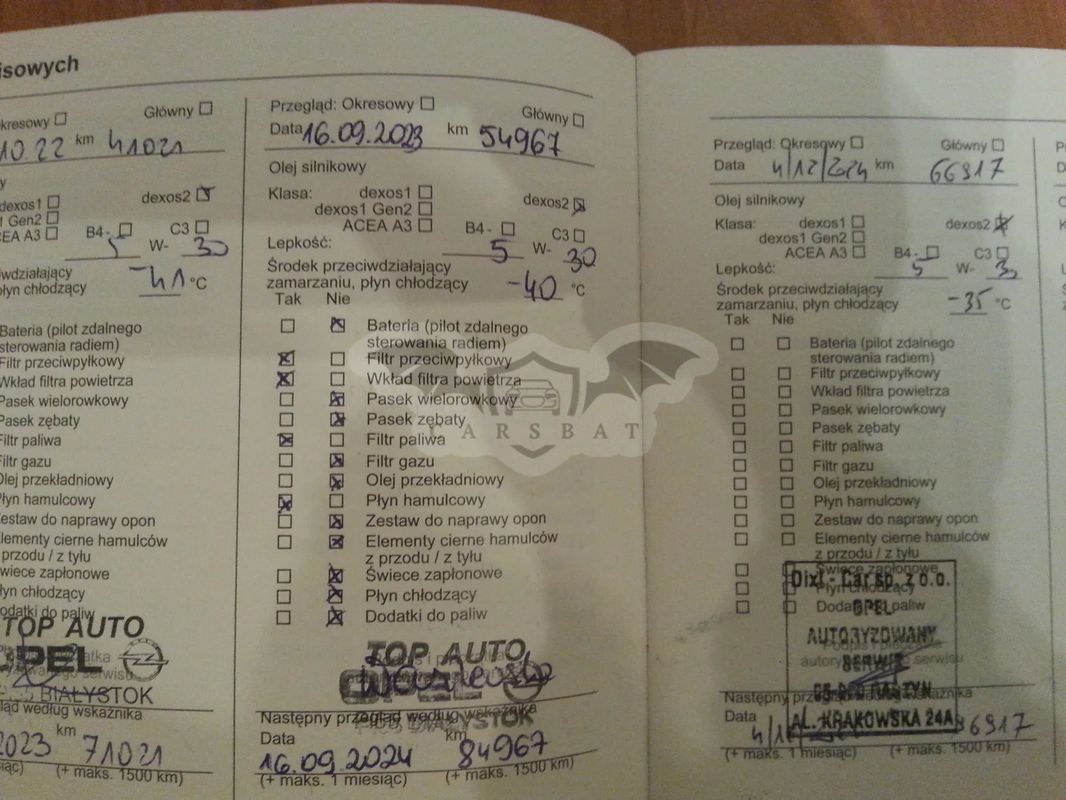 isowych
kresowy Główny
10.22 km 41021
dexos1 dexos2
1 Gen2
CEA A3 B4- C3
5 W- 30
iwdziałający
płyn chłodzący -41 °C
Bateria (pilot zdalnego
sterowania radiem)
Filtr przeciwpyłkowy
Wkład filtra powietrza
Pasek wielorowkowy
Pasek zębaty
Filtr paliwa
Filtr gazu
Olej przekładniowy
Płyn hamulcowy
Zestaw do naprawy opon
Elementy cierne hamulców
z przodu / z tyłu
Świece zapłonowe
Płyn chłodzący
Dodatki do paliw
TOP AUTO
OPEL
BIAŁYSTOK
ląd według wskaźnika
2023 km 71021
iąc) (+ maks. 1500 km)
Przegląd: Okresowy Główny
Data 16.09.2023 km 54967
Olej silnikowy
Klasa: dexos1 dexos2
dexos1 Gen2
ACEA A3 B4- C3
Lepkość: 5 W- 30
Środek przeciwdziałający
zamarzaniu, płyn chłodzący -40 °C
Tak Nie
Bateria (pilot zdalnego
sterowania radiem)
Filtr przeciwpyłkowy
Wkład filtra powietrza
Pasek wielorowkowy
Pasek zębaty
Filtr paliwa
Filtr gazu
Olej przekładniowy
Płyn hamulcowy
Zestaw do naprawy opon
Elementy cierne hamulców
z przodu / z tyłu
Świece zapłonowe
Płyn chłodzący
Dodatki do paliw
TOP AUTO
OPEL
BIAŁYSTOK
Następny przegląd według wskaźnika
Data km
16.09.2024 84967
(+ maks. 1 miesiąc) (+ maks. 1500 km)
Przegląd: Okresowy Główny
Data 4/12/2024 km 66917
Olej silnikowy
Klasa: dexos1 dexos2
dexos1 Gen2
ACEA A3 B4- C3
Lepkość: 5 W- 30
Środek przeciwdziałający
zamarzaniu, płyn chłodzący -35 °C
Tak Nie
Bateria (pilot zdalnego
sterowania radiem)
Filtr przeciwpyłkowy
Wkład filtra powietrza
Pasek wielorowkowy
Pasek zębaty
Filtr paliwa
Filtr gazu
Olej przekładniowy
Płyn hamulcowy
Zestaw do naprawy opon
Elementy cierne hamulców
z przodu / z tyłu
Świece zapłonowe
Płyn chłodzący
Dodatki do paliw
Dixi-Car sp. z o.o.
OPEL
AUTORYZOWANY
SERWIS
RASZYN
AL. KRAKOWSKA 24A
Następny przegląd według wskaźnika
Data
(+ maks. 1 miesiąc) (+ maks. 1500 km)
CARSBAT